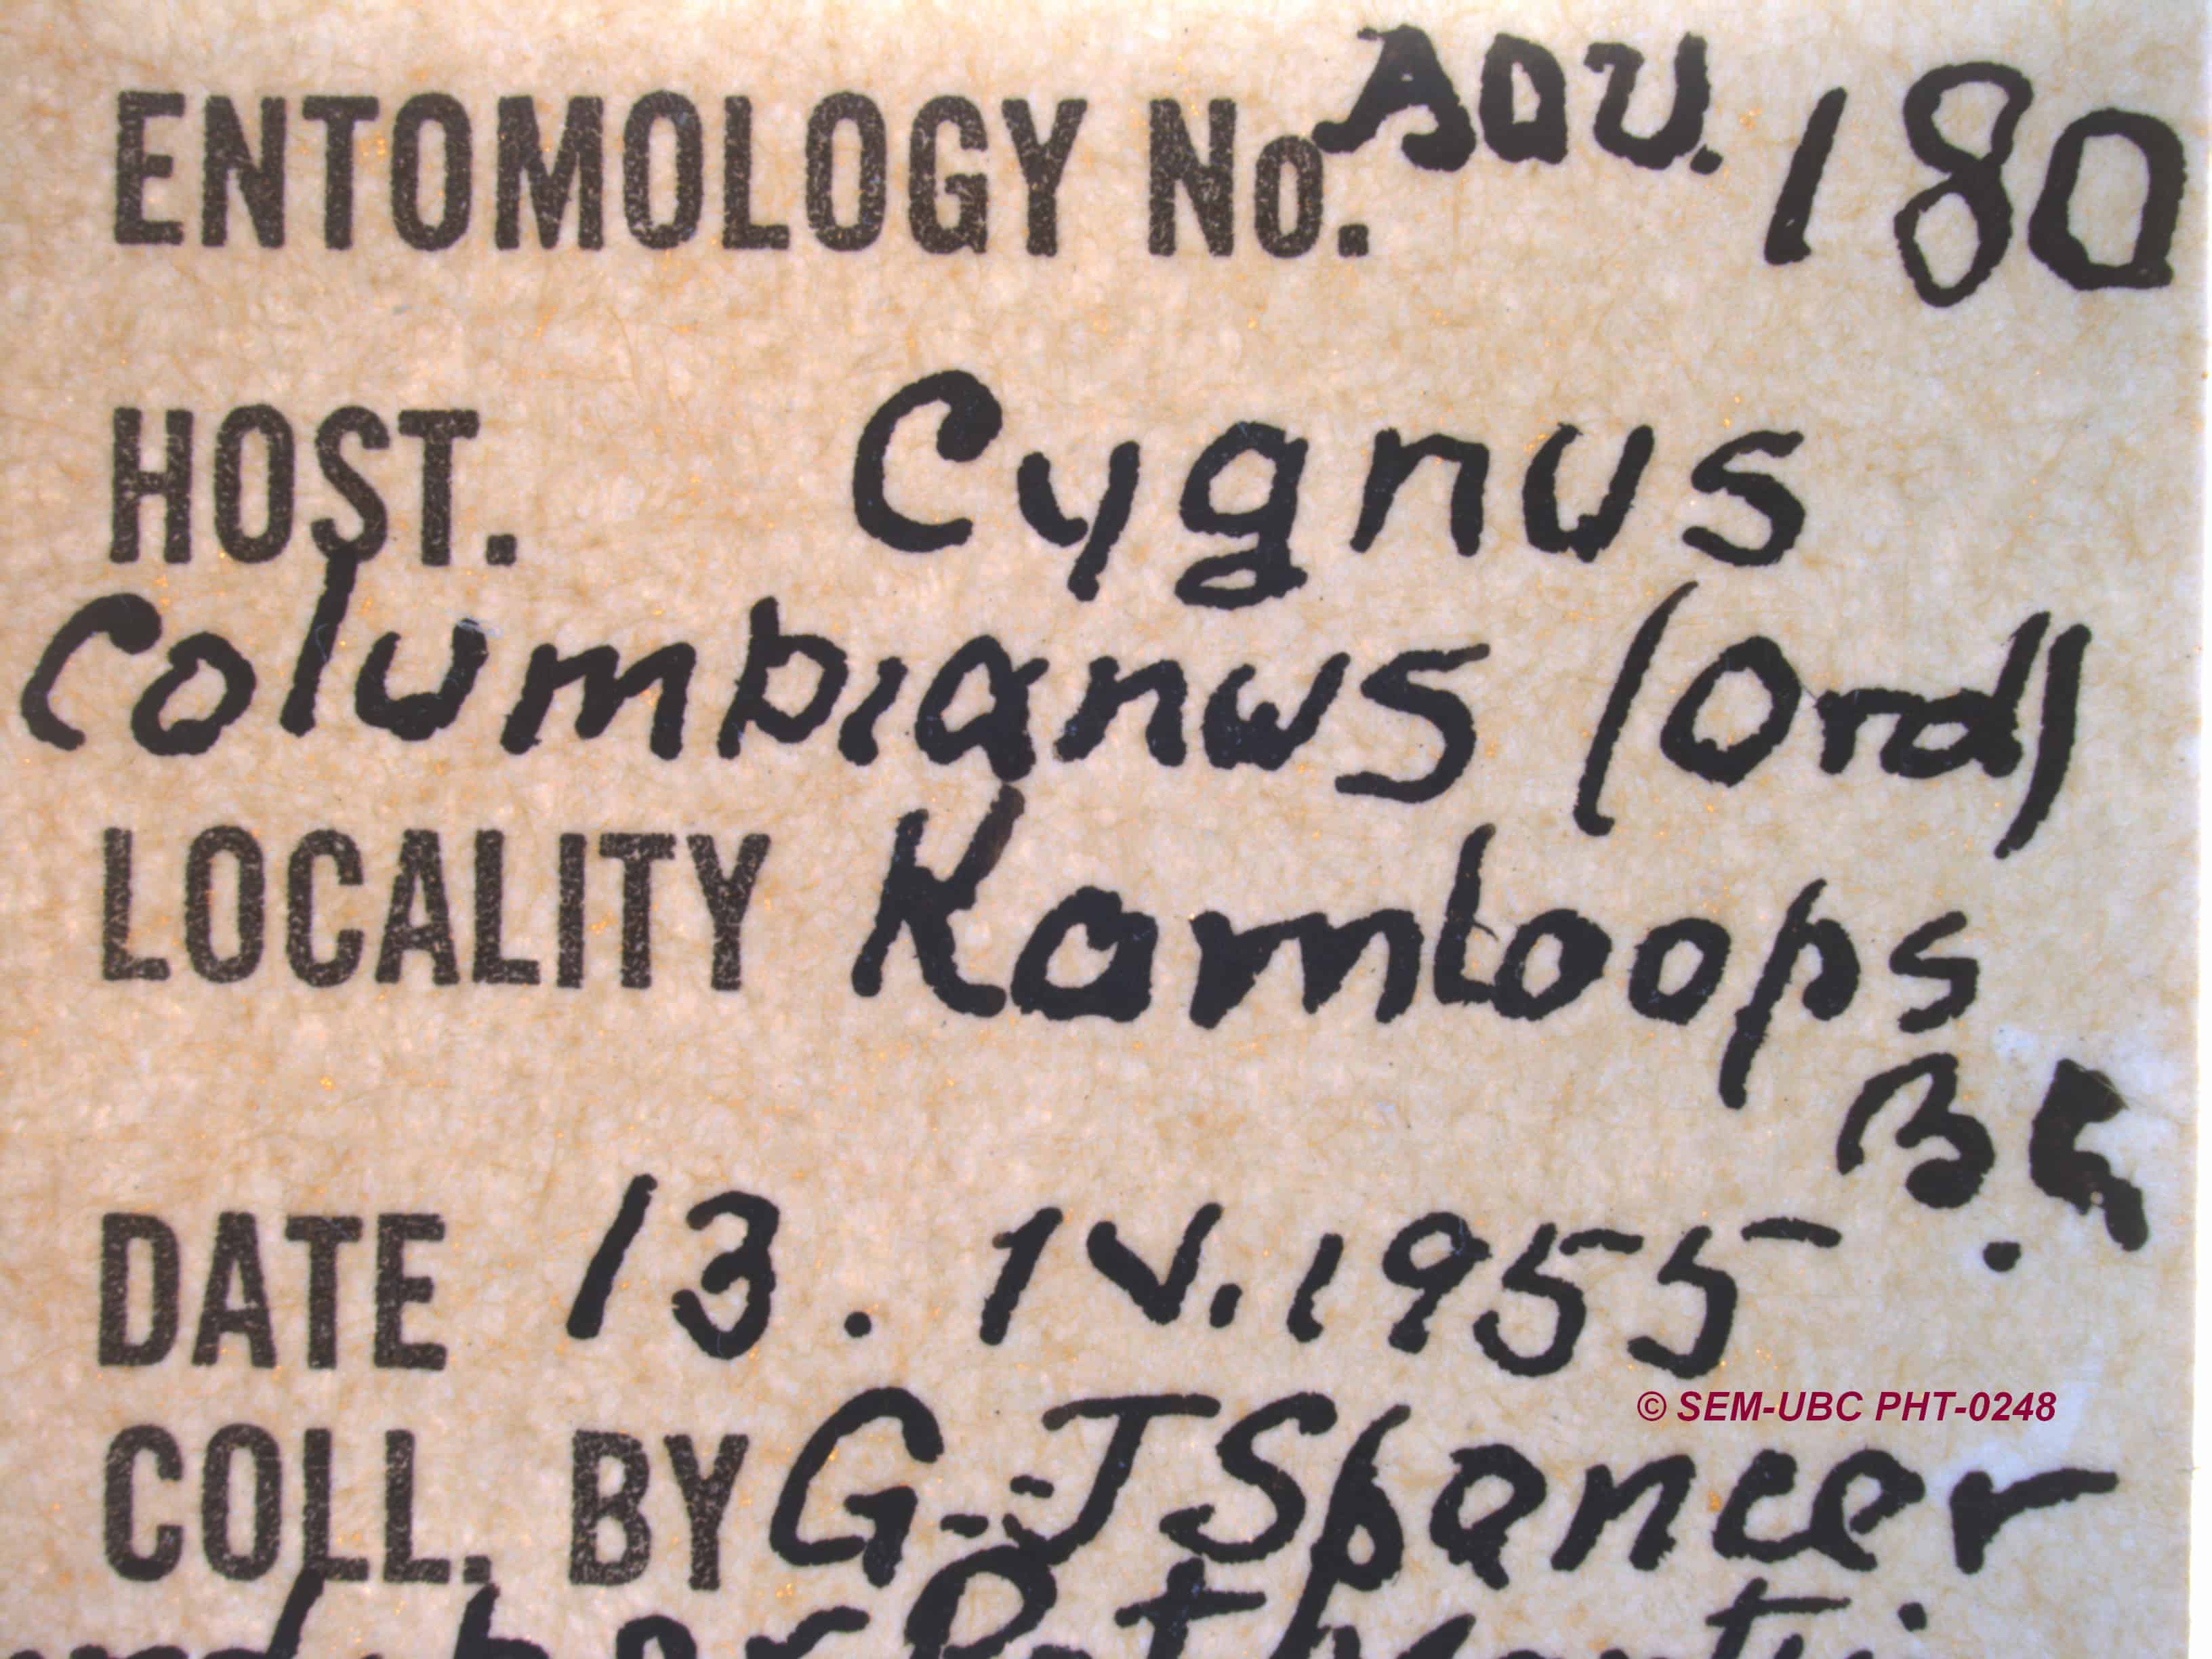 ENTOMOLOGY No. Aou. 180
HOST. Cygnus
Columbianus (Ord)
LOCALITY Kamloops
B.C
DATE 13. IV. 1955
© SEM-UBC PHT-0248
COLL. BY G. J Spencer